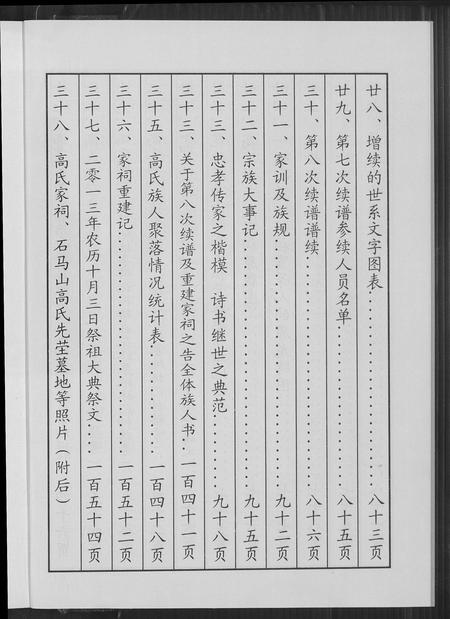 廿八、增续的世系文字图表..........八十三页
廿九、第七次续谱参续人员名单..........八十五页
三十、第八次续谱谱续..........八十六页
三十一、家训及族规..........九十二页
三十二、宗族大事记..........九十五页
三十三、忠孝传家之楷模　诗书继世之典范..........九十八页
三十三、关于第八次续谱及重建家祠之告全体族人书..一百四十一页
三十五、高氏族人聚落情况统计表..........一百四十八页
三十六、家祠重建记..........一百五十二页
三十七、二零一三年农历十月三日祭祖大典祭文...一百五十四页
三十八、高氏家祠、石马山高氏先茔墓地等照片（附后）